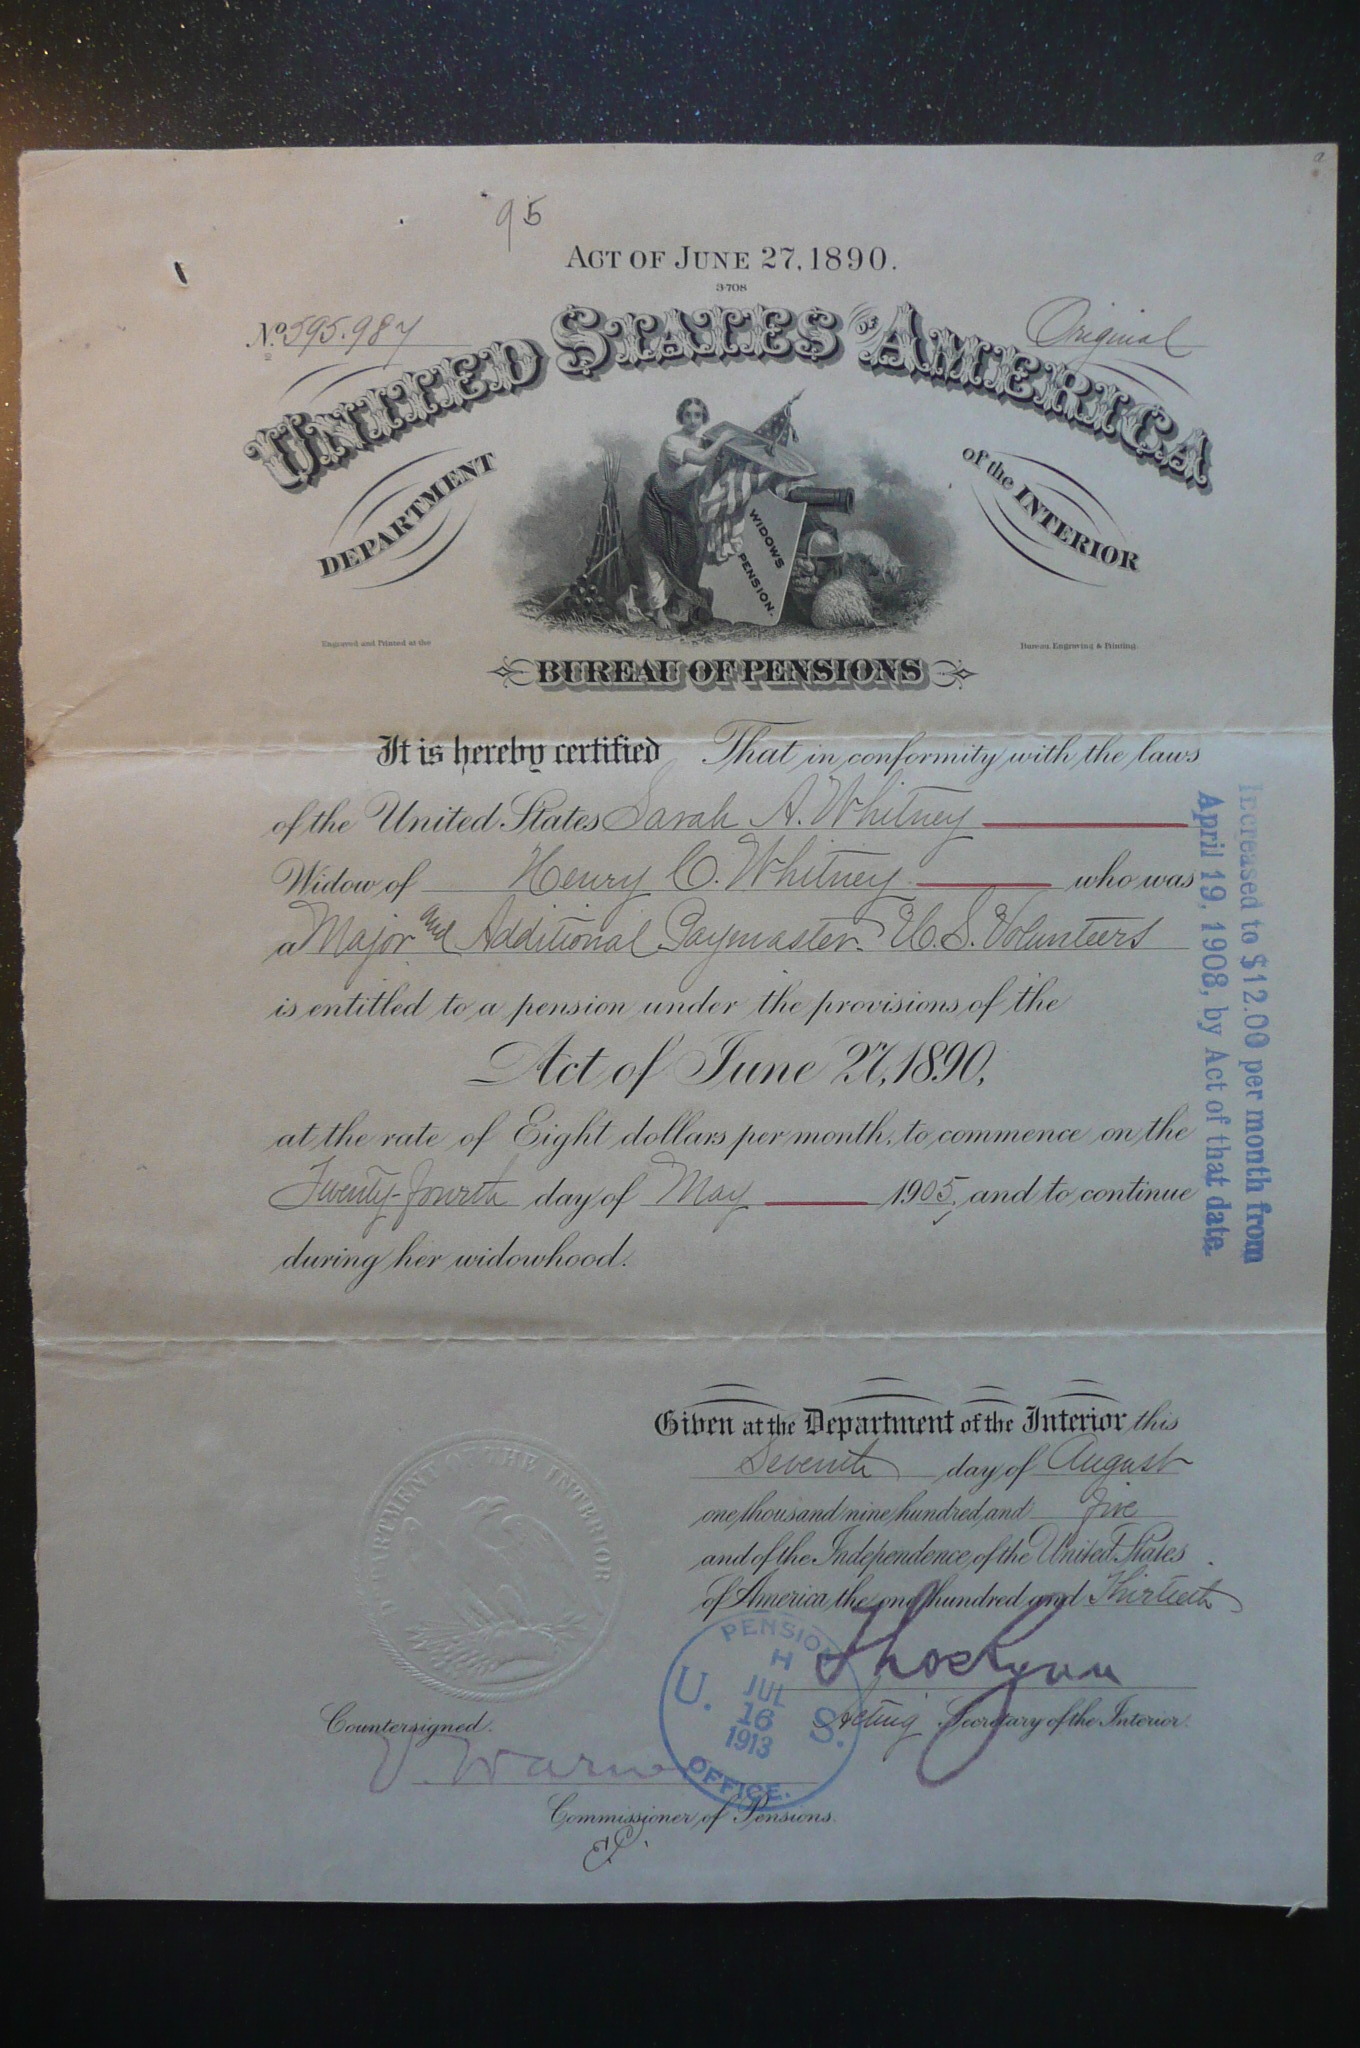 95
ACT OF JUNE 27, 1890.
3-708
No. 595.987
Original
UNITED STATES OF AMERICA
DEPARTMENT
of the INTERIOR
WIDOWS
PENSION.
Engraved and Printed at the
Bureau, Engraving & Printing.
BUREAU OF PENSIONS
It is hereby certified That in conformity with the laws
of the United States Sarah A. Whitney
Widow of Henry C. Whitney who was
a Major and Additional Paymaster. U.S. Volunteers
is entitled to a pension under the provisions of the
Act of June 27, 1890,
at the rate of Eight dollars per month, to commence on the
Twenty-fourth day of May 1905, and to continue
during her widowhood.
Increased to $12.00 per month from
April 19, 1908, by Act of that date.
Given at the Department of the Interior this
Seventh day of August
one thousand nine hundred and five
and of the Independence of the United States
of America the one hundred and Thirtieth
DEPARTMENT OF THE INTERIOR
Thos Ryan
Acting Secretary of the Interior.
U. S. PENSION
H
JUL
16
1913
OFFICE.
Countersigned.
V. Warner
Commissioner of Pensions.